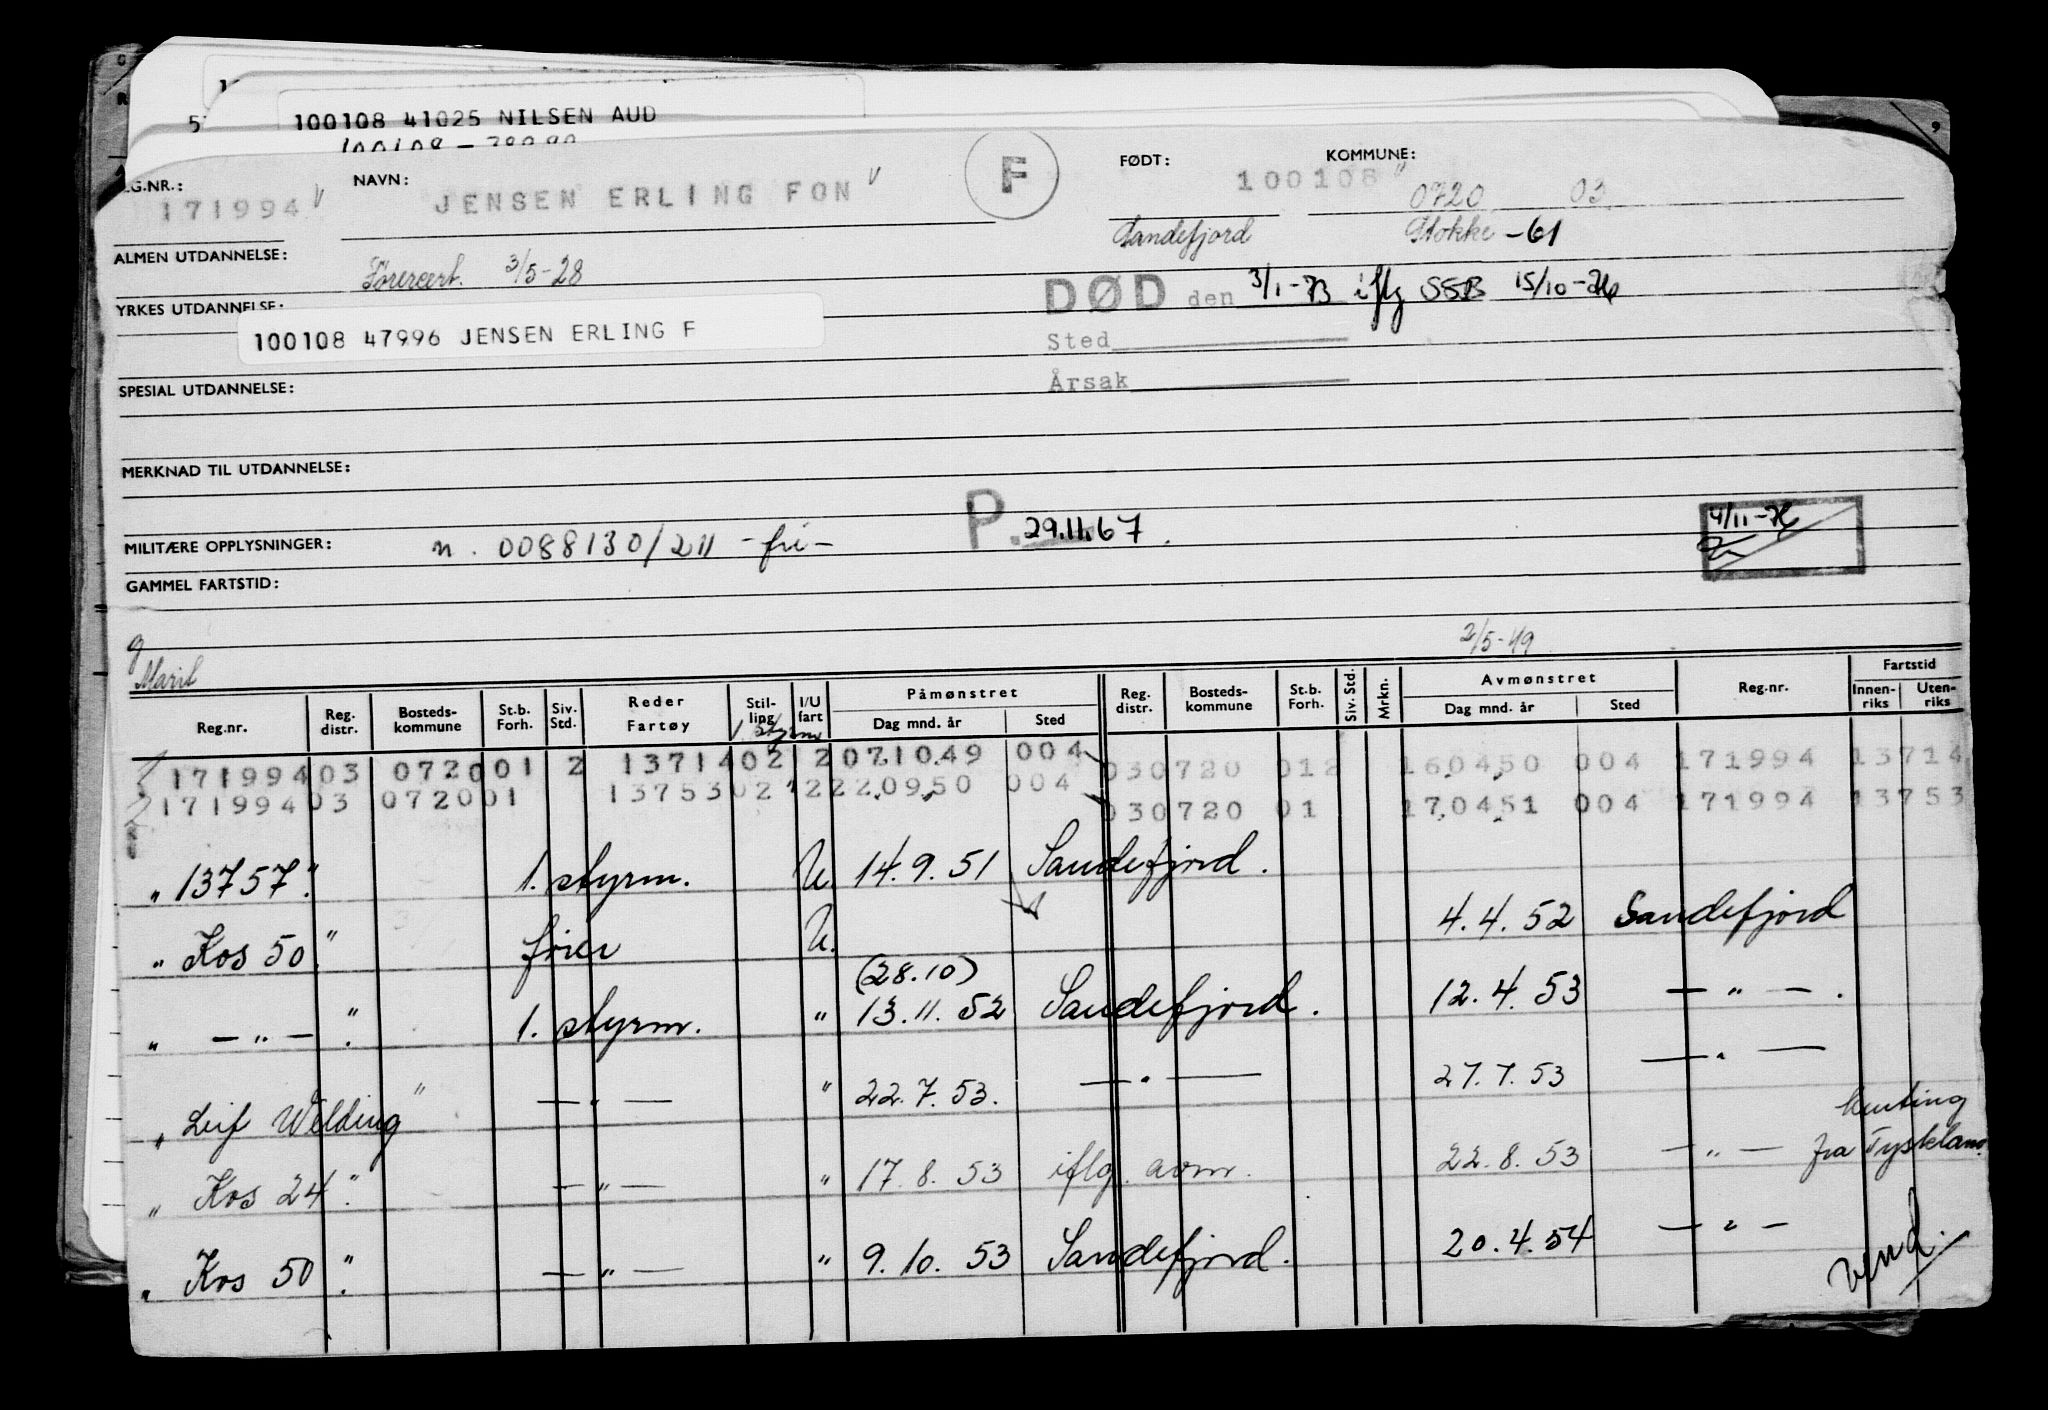 100108 41025 NILSEN AUD
REG.NR.: NAVN: F FØDT: KOMMUNE:
171994 v JENSEN ERLING FON v 100108 " 0720 03
Sandefjord Stokke - 61
ALMEN UTDANNELSE: Førercert. 3/5-28
DØD den 3/1-73 iflg SSB 15/10-76
YRKES UTDANNELSE:
100108 47996 JENSEN ERLING F
Sted
Årsak
SPESIAL UTDANNELSE:
MERKNAD TIL UTDANNELSE:
P. 29.11.67.
4/11-76
MILITÆRE OPPLYSNINGER: n. 0088130/211 -fri-
GAMMEL FARTSTID:
g
Marit
2/5-49
Reg.nr. Reg. distr. Bosteds-kommune St.b. Forh. Siv. Std. Reder Fartøy Stil-ling I/U fart Påmønstret Dag mnd. år Sted Reg. distr. Bosteds-kommune St.b. Forh. Siv. Std. Mrkn. Avmønstret Dag mnd. år Sted Reg.nr. Fartstid Innen-riks Uten-riks
1 styrm
171994 03 0720 01 2 13714 02 2 071049 004 030720 012 160450 004 171994 13714
171994 03 0720 01 13753 02 2 220950 004 030720 01 170451 004 171994 13753
" 13757 " 1. styrm. U. 14.9.51 Sandefjord.
" Kos 50 " fører U. 4.4.52 Sandefjord
(28.10)
" — " — " 1. styrm. " 13.11.52 Sandefjord. 12.4.53 — " — .
" Leif Welding " — " — " 22.7.53. — " — 27.7.53 — " —
" Kos 24 " — " — " 17.8.53 iflg. avm. 22.8.53 — " — henting fra Tyskland
" Kos 50 " — " — " 9.10.53 Sandefjord. 20.4.54 — " —
vend.